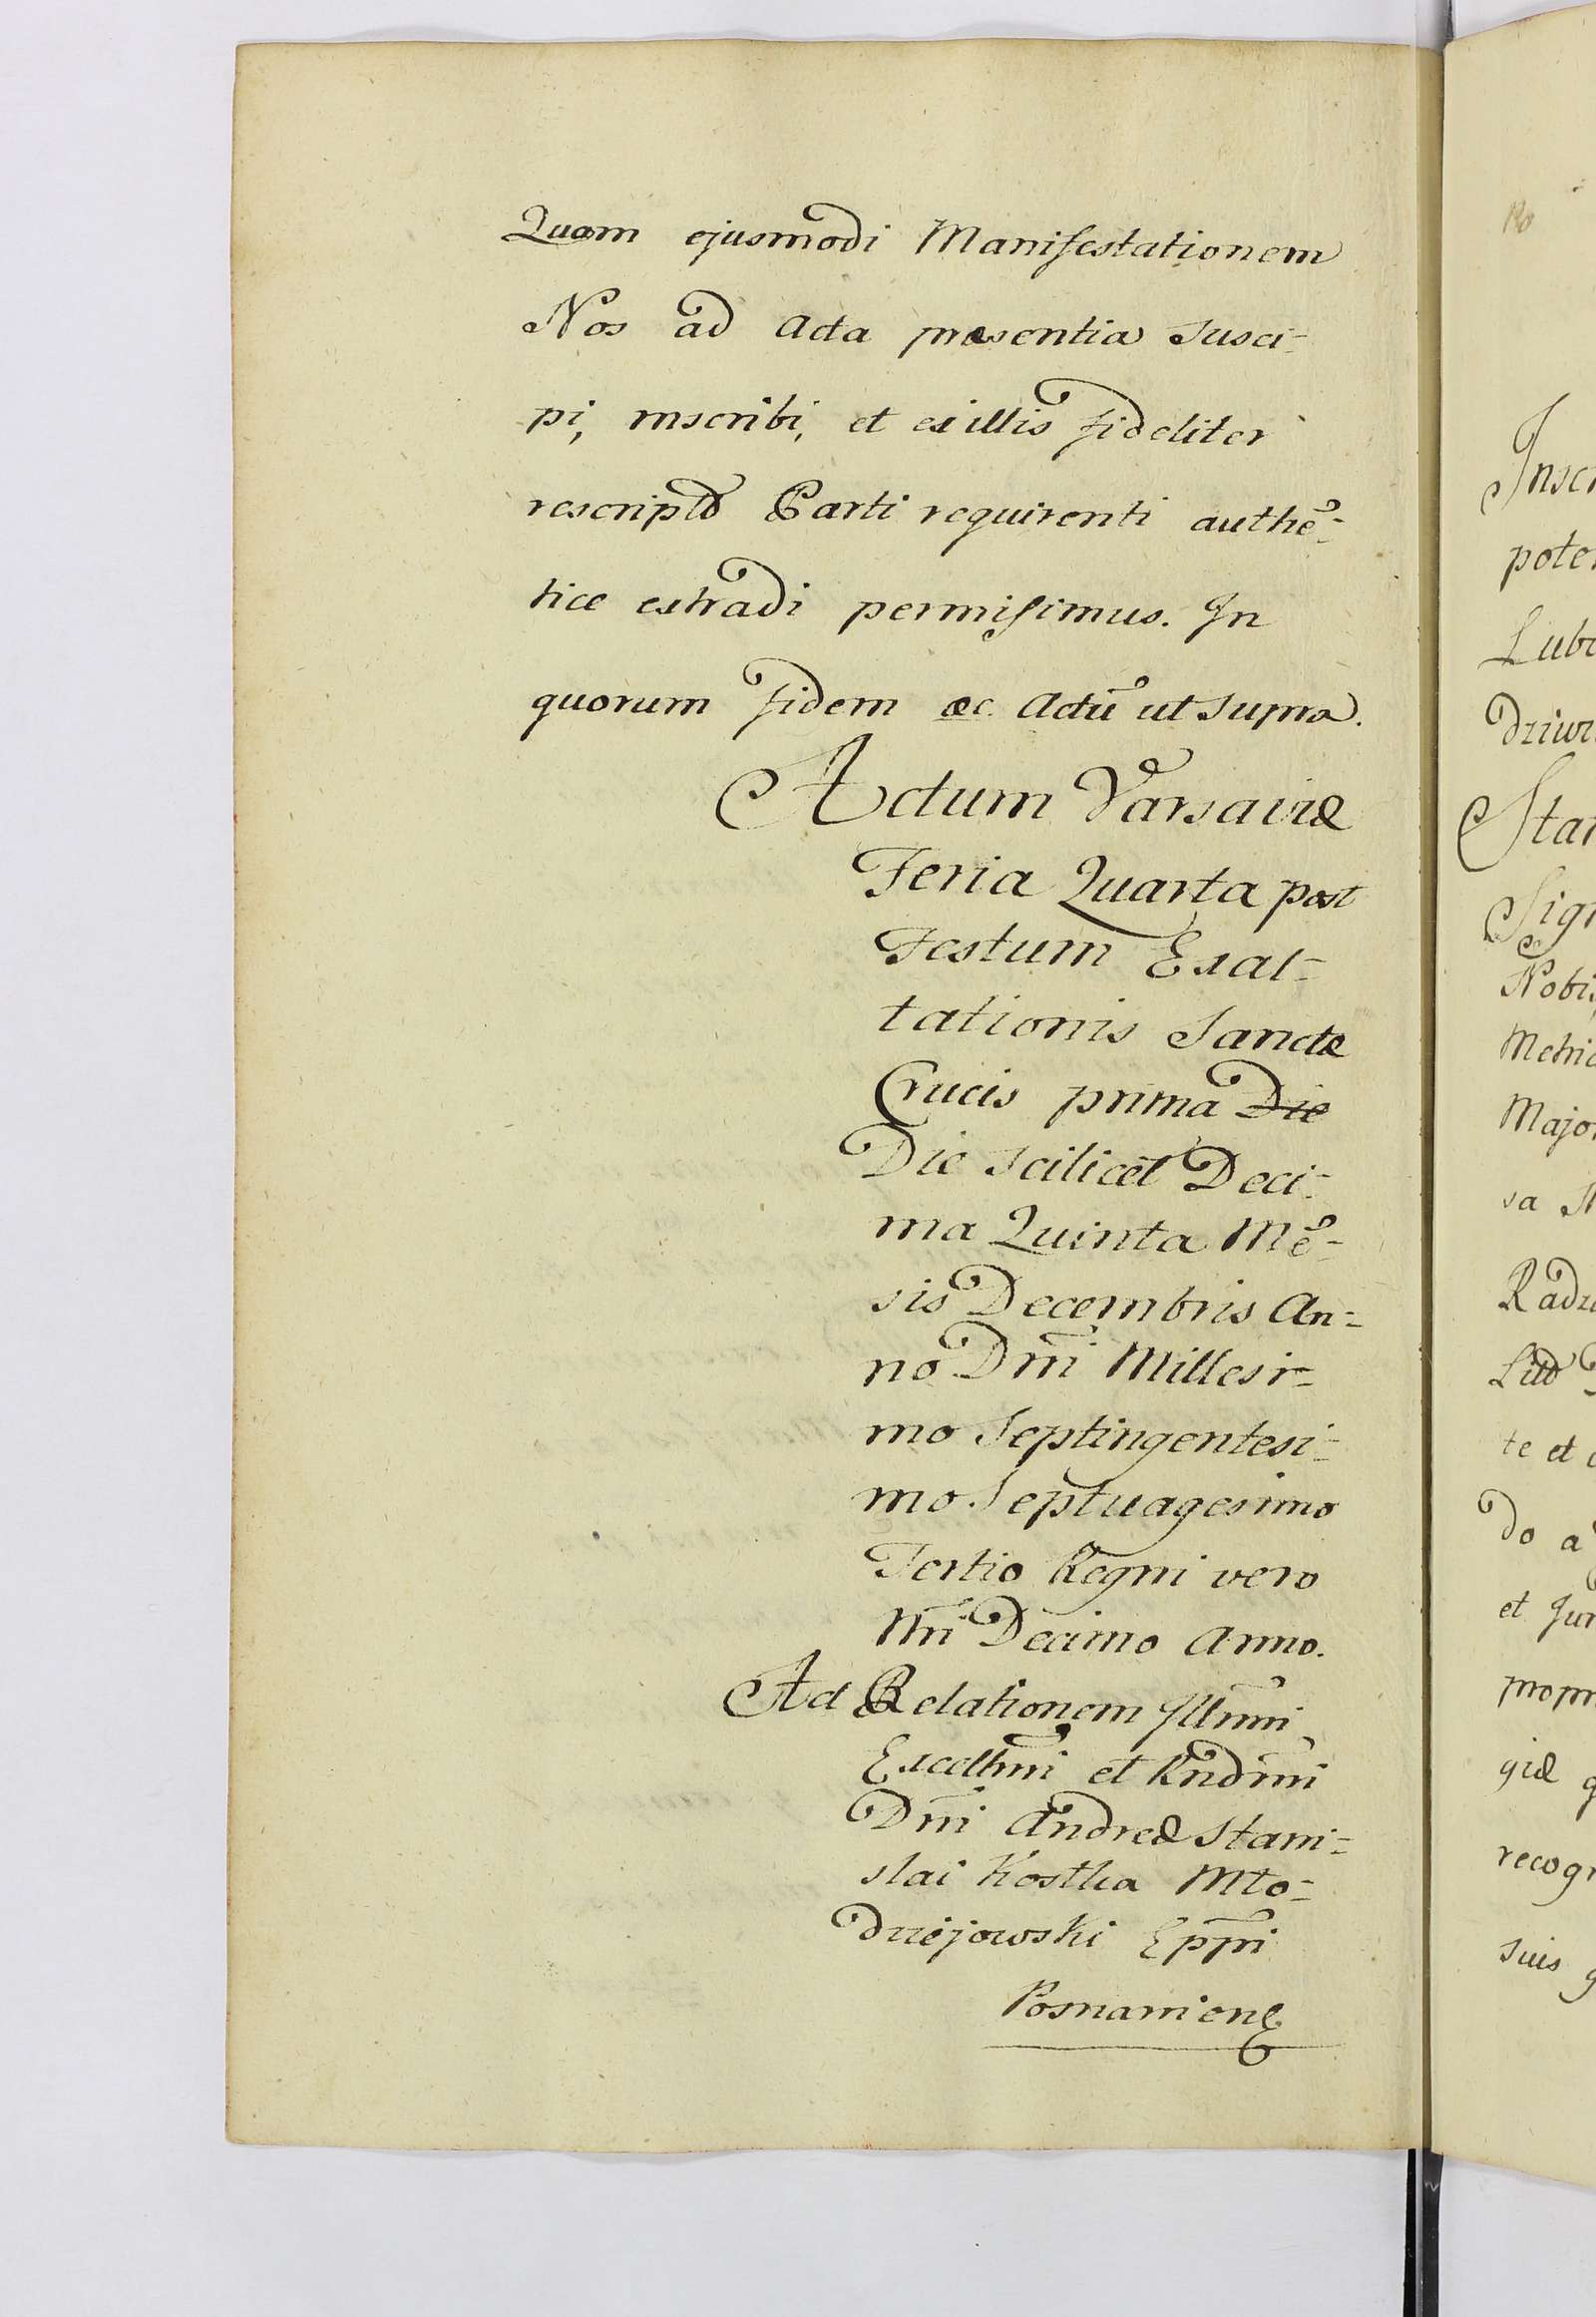 Quam ejusmodi Manifestationem
Nos ad Acta præsentia susci=
pi, inscribi, et ex illis fideliter
rescriptã Parti requirenti authẽ=
tice extradi permisimus. In
quorum fidem &c. Actũ ut supra.
Actum Varsaviæ
Feria Quarta post
Festum Exal=
tationis Sanctæ
Crucis prima Die
Die scilicet Deci=
ma Quinta Mẽ=
sis Decembris An=
no Dni Millesi=
mo Septingentesi=
mo Septuagesimo
Tertio Regni vero
Nri Decimo Anno.
Ad Relationem Illmi
Excellmi et Rndmi
Dni Andreæ Stani=
slai Kostka Mło=
dziejowski Eppi
Posnanien
Inscr
poter
Lubr
dziwi
Stan
Sign
Nobis
Metric
Major
sa
Radzi
te et
do a
et Jur
propri
giæ q
recogn
suis q